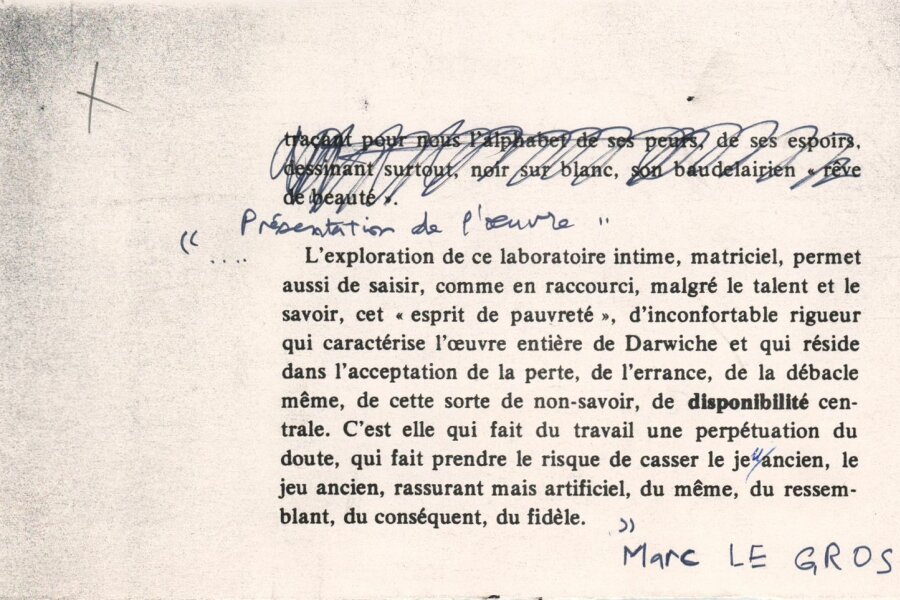 traçant pour nous l'alphabet de ses peurs, de ses espoirs,
dessinant surtout, noir sur blanc, son baudelairien « rêve
de beauté ».
Présentation de l'œuvre "
" ....
L'exploration de ce laboratoire intime, matriciel, permet
aussi de saisir, comme en raccourci, malgré le talent et le
savoir, cet « esprit de pauvreté », d'inconfortable rigueur
qui caractérise l'œuvre entière de Darwiche et qui réside
dans l'acceptation de la perte, de l'errance, de la débacle
même, de cette sorte de non-savoir, de disponibilité cen-
trale. C'est elle qui fait du travail une perpétuation du
doute, qui fait prendre le risque de casser le jeu ancien, le
jeu ancien, rassurant mais artificiel, du même, du ressem-
blant, du conséquent, du fidèle.
"
Marc LE GROS